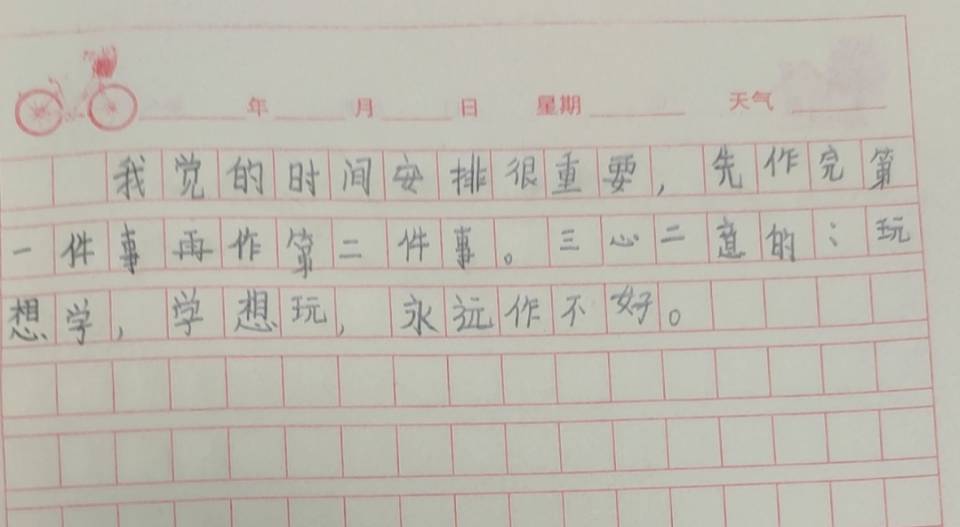 年 月 日 星期 天气
我觉的时间安排很重要，先作完第
一件事再作第二件事。三心二意的：玩
想学，学想玩，永远作不好。